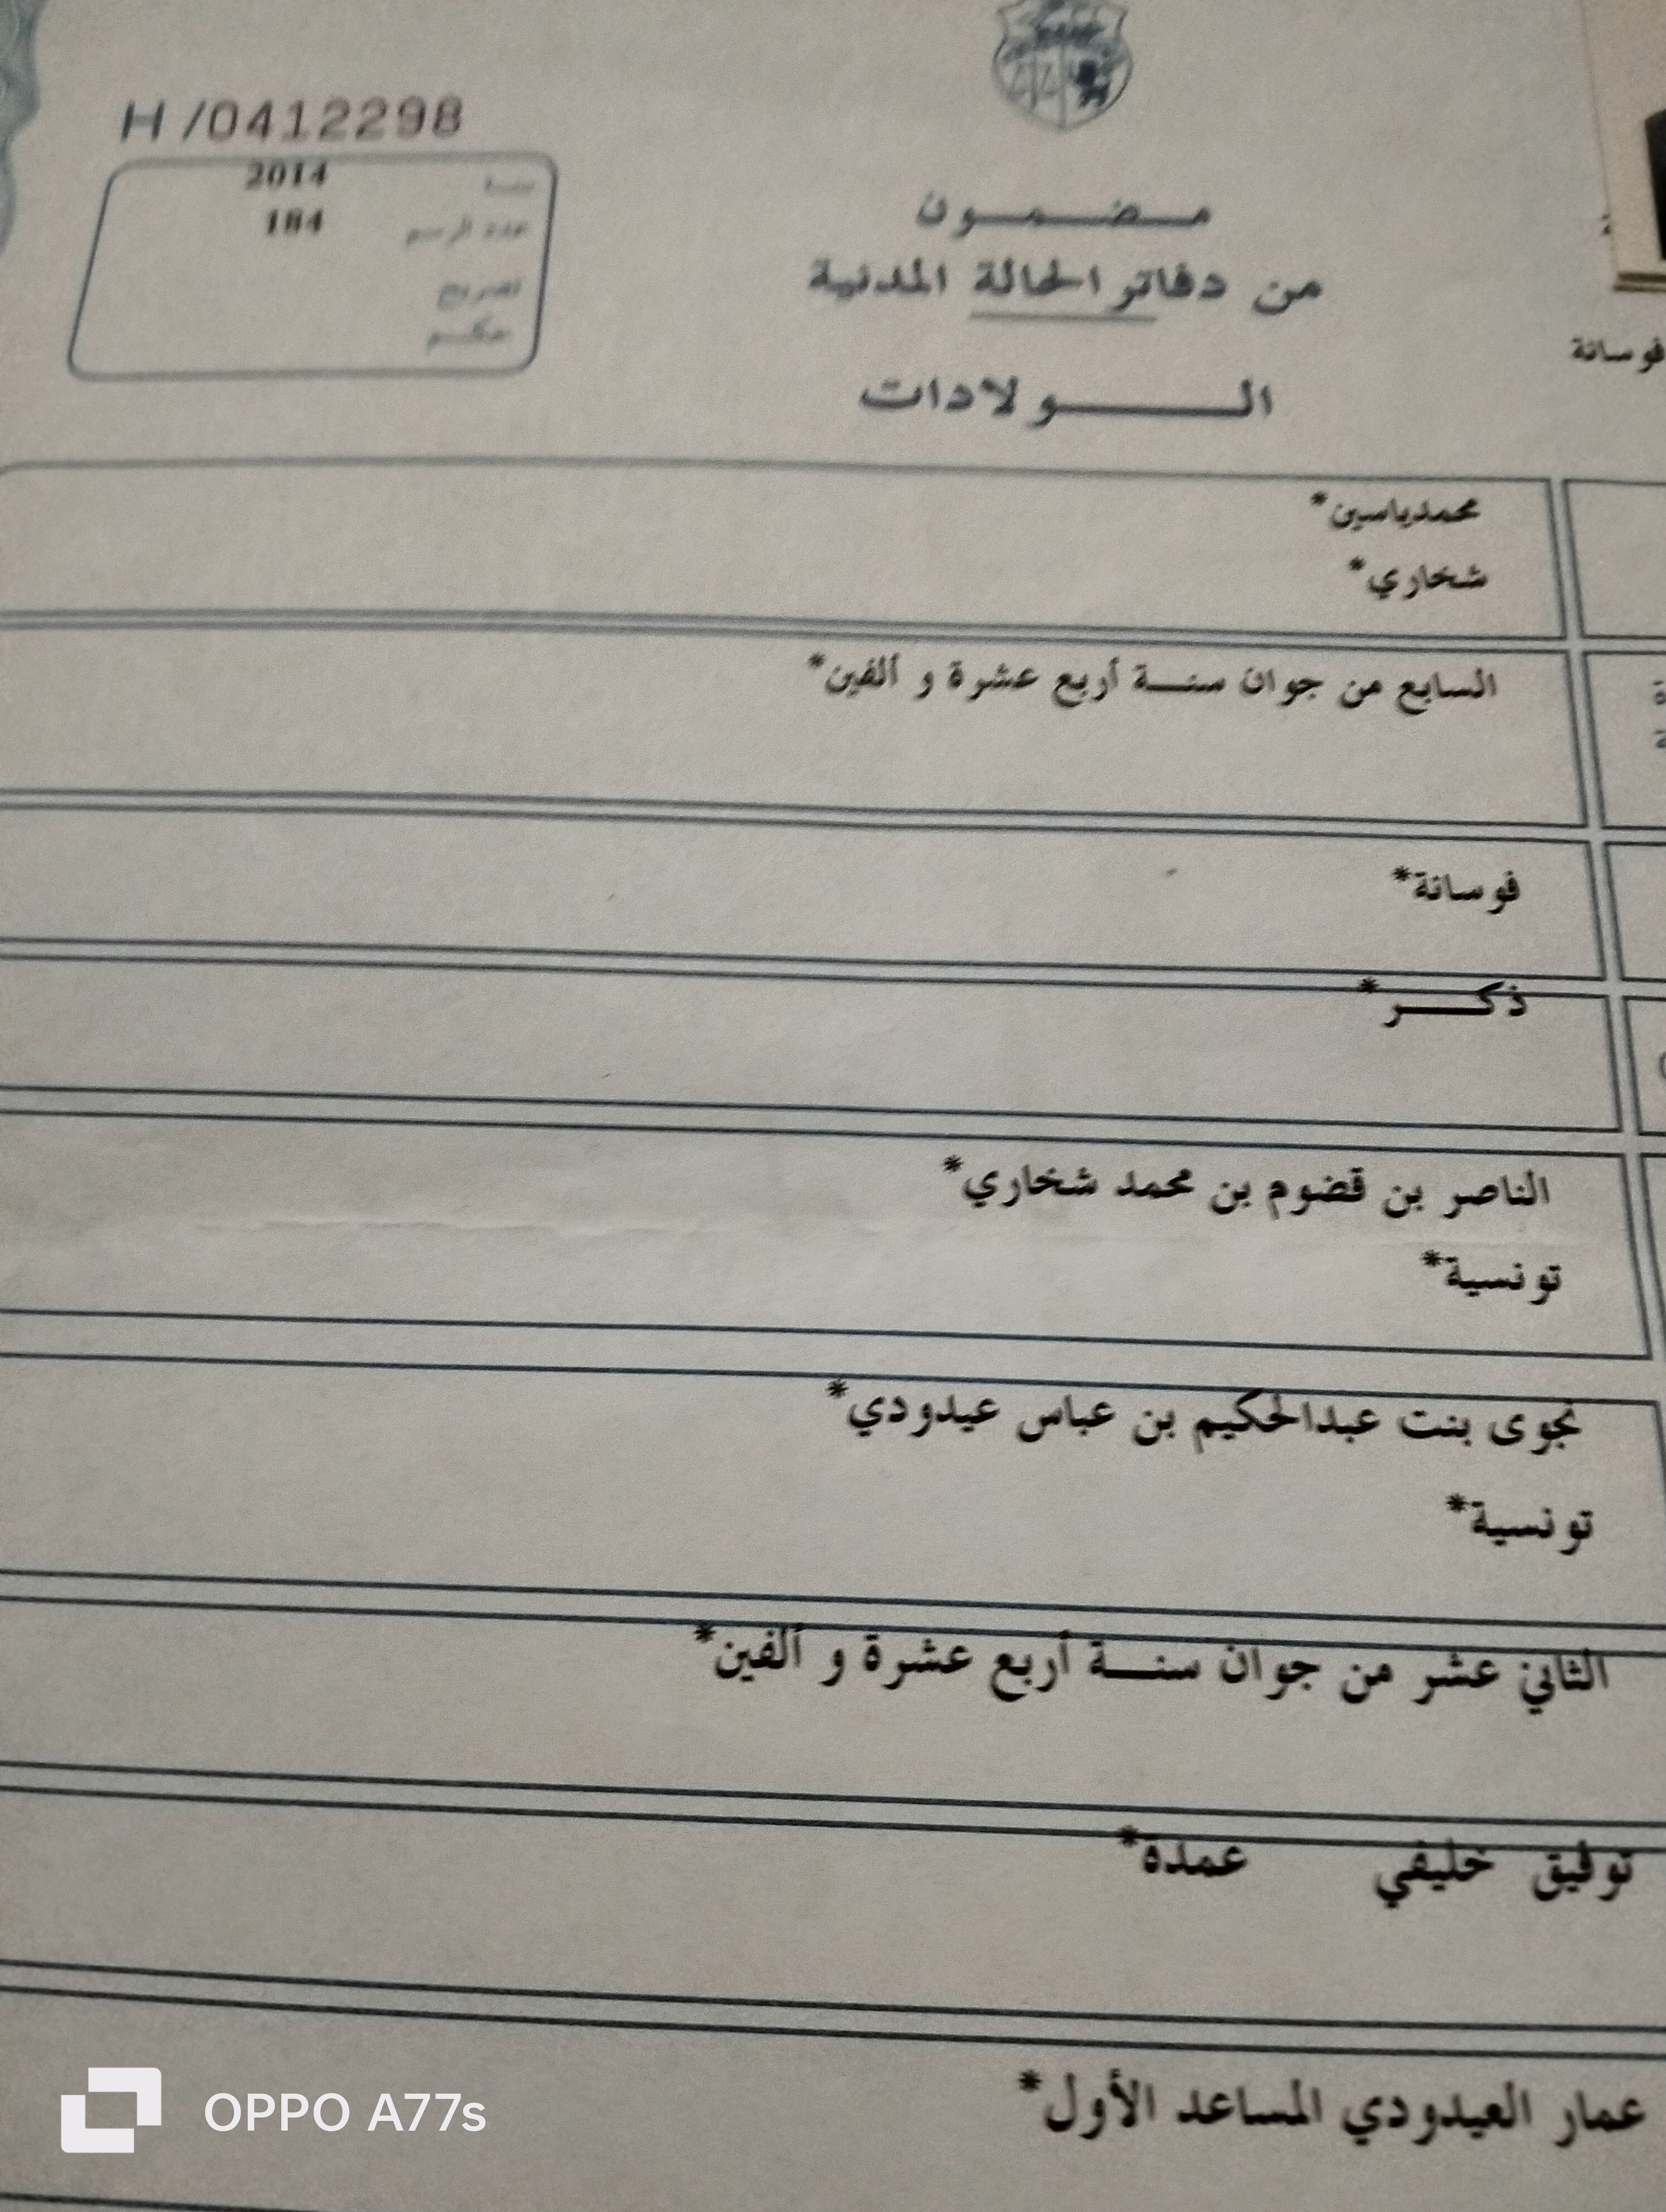 H /0412298
سنة 2014
عدد الرسم 184
تصريح
حكم
مضمون
من دفاتر الحالة المدنية
الولادات
فوسانة
محمدياسين*
شخاري*
السابع من جوان سنة أربع عشرة و ألفين*
فوسانة*
ذكر*
الناصر بن قضوم بن محمد شخاري*
تونسية*
نجوى بنت عبدالحكيم بن عباس عيدودي*
تونسية*
الثاني عشر من جوان سنة أربع عشرة و ألفين*
توفيق خليفي عمدة*
عمار العيدودي المساعد الأول*
OPPO A77s